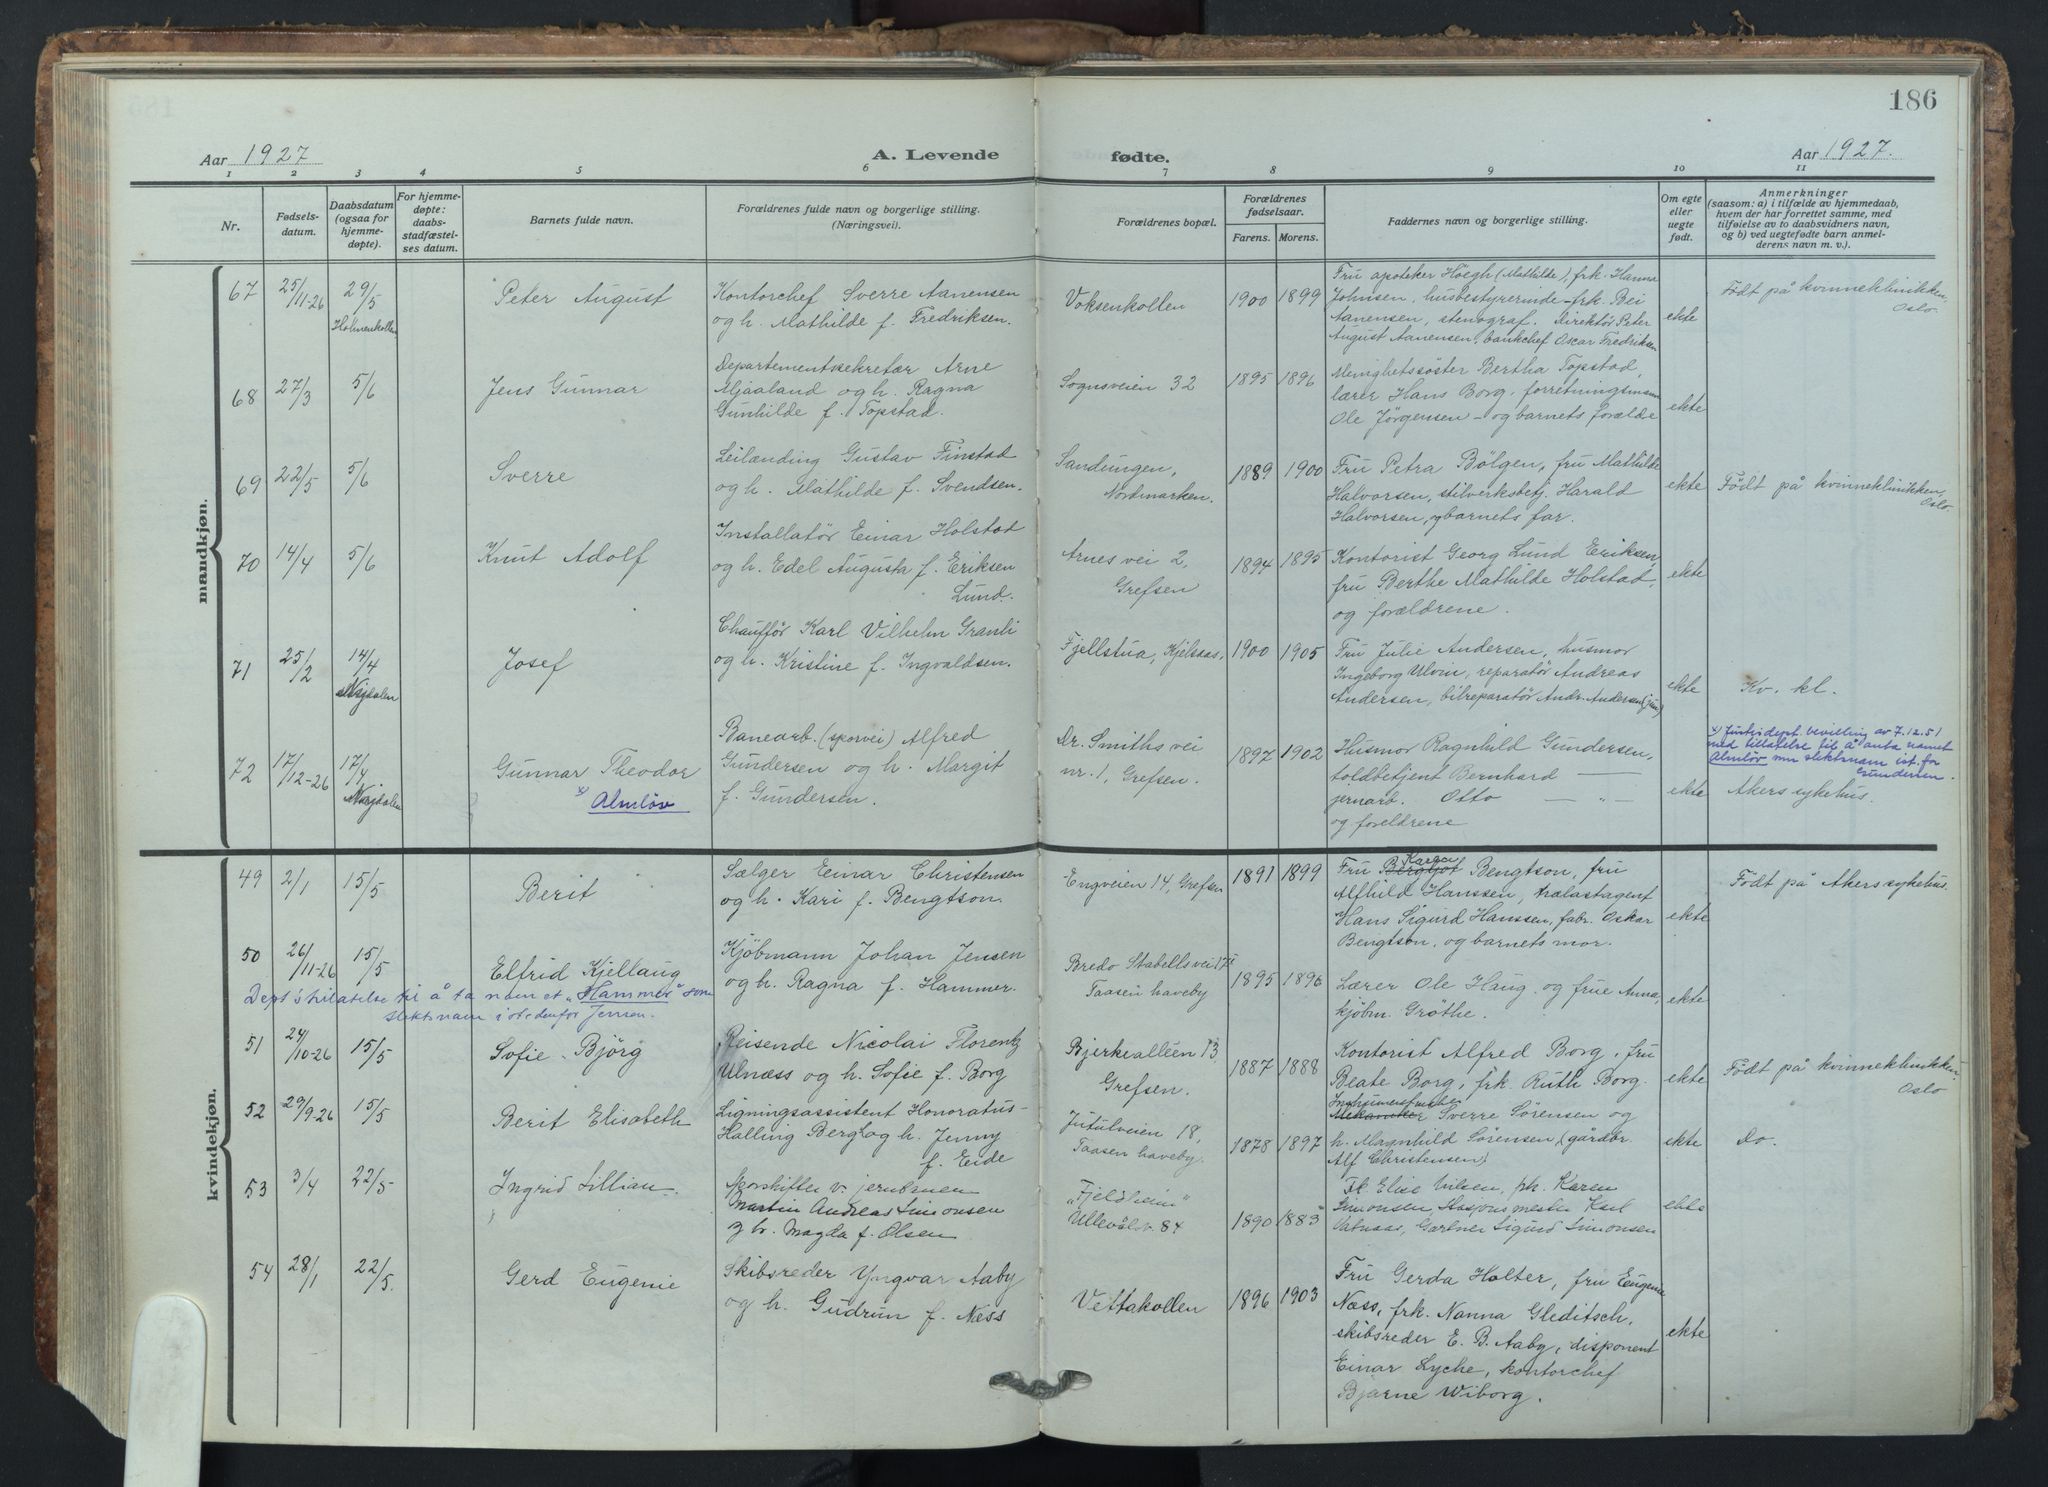 186
Aar 1927
A. Levende
fødte.
Aar 1927.
1 2 3 4 5 6 7 8 9 10 11
Nr.
Fødsels-
datum.
Daabsdatum
(ogsaa for
hjemme-
døpte).
For hjemme-
døpte:
daabs-
stadfæstel-
ses datum.
Barnets fulde navn.
Forældrenes fulde navn og borgerlige stilling.
(Næringsvei).
Forældrenes bopæl.
Forældrenes
fødselsaar.
Farens. Morens.
Faddernes navn og borgerlige stilling.
Om egte
eller
uegte
født.
Anmerkninger
(saasom: a) i tilfælde av hjemmedaab,
hvem der har forrettet samme, med
tilføielse av to daabsvidners navn,
og b) ved uegtefødte barn anmel-
derens navn m. v.).
mandkjøn.
67 25/11-26 29/5 Holmenkollen
Peter August
Kontorchef Sverre Aanensen
og h. Mathilde f. Fredriksen.
Voksenkollen
1900 1899
Fru apoteker Höegh (Mathilde), frk. Hanna
Johnsen, husbestyrerinde - frk. Bei
Aanensen, stenograf. Direktör Peter
August Aanensen, bankchef Oscar Fredriksen
ekte
Födt på kvinneklinikken,
Oslo.
68 27/3 5/6
Jens Gunnar
Departementssekretær Arne
Mjaaland og h. Ragna
Gunhilde f. Topstad.
Sognsveien 32
1895 1896
Menighetssöster Bertha Topstad,
lærer Hans Borg, forretningsmann
Ole Jörgensen - og barnets forælde
ekte
69 22/5 5/6
Sverre
Leilænding Gustav Finstad
og h. Mathilde f. Svendsen.
Sandungen,
Nordmarken.
1889 1900
Fru Petra Bölgen, fru Mathilde
Halvorsen, stilverksbetj. Harald
Halvorsen, og barnets far.
ekte
Födt på kvinneklinikken,
Oslo.
70 14/4 5/6
Knut Adolf
Installatör Einar Holstad
og h. Edel Augusta f. Eriksen
Lund.
Arnes vei 2,
Grefsen
1894 1895
Kontorist Georg Lund Eriksen,
fru Berthe Mathilde Holstad,
og forældrene.
ekte
71 25/2 14/4
Josef
Chaufför Karl Vilhelm Granli
og h. Kristine f. Ingvaldsen.
Fjellstua, Kjelsaas.
1900 1905
Fru Julie Andersen, husmor
Ingeborg Ulvin, reparatör Andreas
Andersen, bilreparatör Andr. Andersen (jun)
ekte
Kv. kl.
72 17/12-26 17/4
Gunnar Theodor
x) Almlöv
Banearb. (sporvei) Alfred
Gundersen og h. Margit
f. Gundersen.
Dr. Smiths vei
nr. 1, Grefsen.
1897 1902
Husmor Ragnhild Gundersen,
toldbetjent Bernhard —
jernarb. Otto — " —
og foreldrene
ekte
x) Justisdept. bevilling av 7.12.51
med tillatelse til å anta navnet
Almlöv som slektsnavn ist. for
Gundersen.
Akers sykehus.
kvindekjøn.
49 2/1 15/5
Berit
Sælger Einar Christensen
og h. Kari f. Bengtson.
Engveien 14, Grefsen
1891 1899
Fru Bergljot Karen Bengtson, fru
Alfhild Hanssen, trælastagent
Hans Sigurd Hanssen, fabr. Oskar
Bengtson, og barnets mor.
ekte
Födt på Akers sykehus.
50 26/11-26 15/5
Elfrid Kjellaug
Dept's tilatelse til å ta navnet "Hammer" som
slektsnavn istedenfor Jensen.
Kjöbmann Johan Jensen
og h. Ragna f. Hammer.
Bredo Stabells vei 17
Taasen haveby
1895 1896
Lærer Ole Haug og frue Anna,
kjöbm. Gröthe.
ekte
51 24/10-26 15/5
Sofie Björg
Reisende Nicolai Florentz
Ulnæss og h. Sofie f. Borg
Bjerkealléen 13
Grefsen.
1887 1888
Kontorist Alfred Borg, fru
Beate Borg, frk. Ruth Borg.
ekte
Födt på kvinneklinikken,
Oslo
52 29/9-26 15/5
Berit Elisabeth
Ligningsassistent Honoratus
Halling Bergh og h. Jenny
f. Eide
Jutulveien 18,
Taasen haveby.
1878 1897
Mekaniker Sverre Sörensen og
h. Magnhild Sörensen (gårdbr.
Alf Christensen)
ekte
Do.
53 3/4 22/5
Ingrid Lillian
Sporskifter v. jernbanen
Martin Andreas Simonsen
og h. Magda f. Olsen
"Fjeldheim"
Ullevålsv. 84
1890 1883
Fr. Elise Nilsen, frk. Karen
Simonsen, Stasjonsmester Karl
Gartner Sigurd Simonsen
ekte
54 28/1 22/5.
Gerd Eugenie
Skibsreder Yngvar Aaby
og h. Gudrun f. Næss
Vettakollen
1896 1903
Fru Gerda Holter, fru Eugenie
Næss, frk. Nanna Gleditsch,
skibsreder E. B. Aaby, disponent
Einar Lyche, kontorchef
Bjarne Wiborg.
ekte